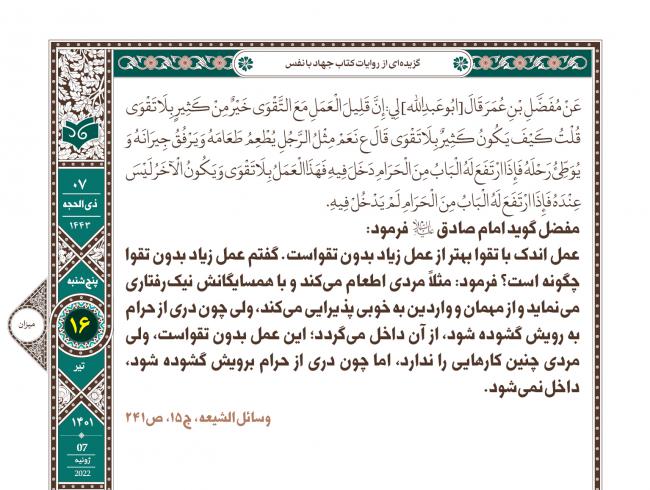 گزیده‌ای از روایات کتاب جهاد با نفس
عَنْ مُفَضَّلِ بْنِ عُمَرَ قَالَ [ابُو عَبدِالله] لِي: إِنَّ قَلِيلَ الْعَمَلِ مَعَ التَّقْوَى خَيْرٌ مِنْ كَثِيرٍ بِلَا تَقْوَى
قُلْتُ كَيْفَ يَكُونُ كَثِيرٌ بِلَا تَقْوَى قَالَ ع نَعَمْ مِثْلُ الرَّجُلِ يُطْعِمُ طَعَامَهُ وَ يَرْفُقُ جِيرَانَهُ وَ
يُوَطِّئُ رَحْلَهُ فَإِذَا ارْتَفَعَ لَهُ الْبَابُ مِنَ الْحَرَامِ دَخَلَ فِيهِ فَهَذَا الْعَمَلُ بِلَا تَقْوَى وَ يَكُونُ الْآخَرُ لَيْسَ
عِنْدَهُ فَإِذَا ارْتَفَعَ لَهُ الْبَابُ مِنَ الْحَرَامِ لَمْ يَدْخُلْ فِيهِ.
مفضل گوید امام صادق علیه‌السلام فرمود:
عمل اندک با تقوا بهتر از عمل زیاد بدون تقواست. گفتم عمل زیاد بدون تقوا
چگونه است؟ فرمود: مثلاً مردی اطعام می‌کند و با همسایگانش نیک‌رفتاری
می‌نماید و از مهمان و واردین به خوبی پذیرایی می‌کند، ولی چون دری از حرام
به رویش گشوده شود، از آن داخل می‌گردد؛ این عمل بدون تقواست، ولی
مردی چنین کارهایی را ندارد، اما چون دری از حرام برویش گشوده شود،
داخل نمی‌شود.
وسائل الشیعه، ج۱۵، ص۲۴۱
۰۷
ذی‌الحجه
۱۴۴۳
پنج‌شنبه
۱۶
میزان
تیر
۱۴۰۱
07
ژوئیه
2022